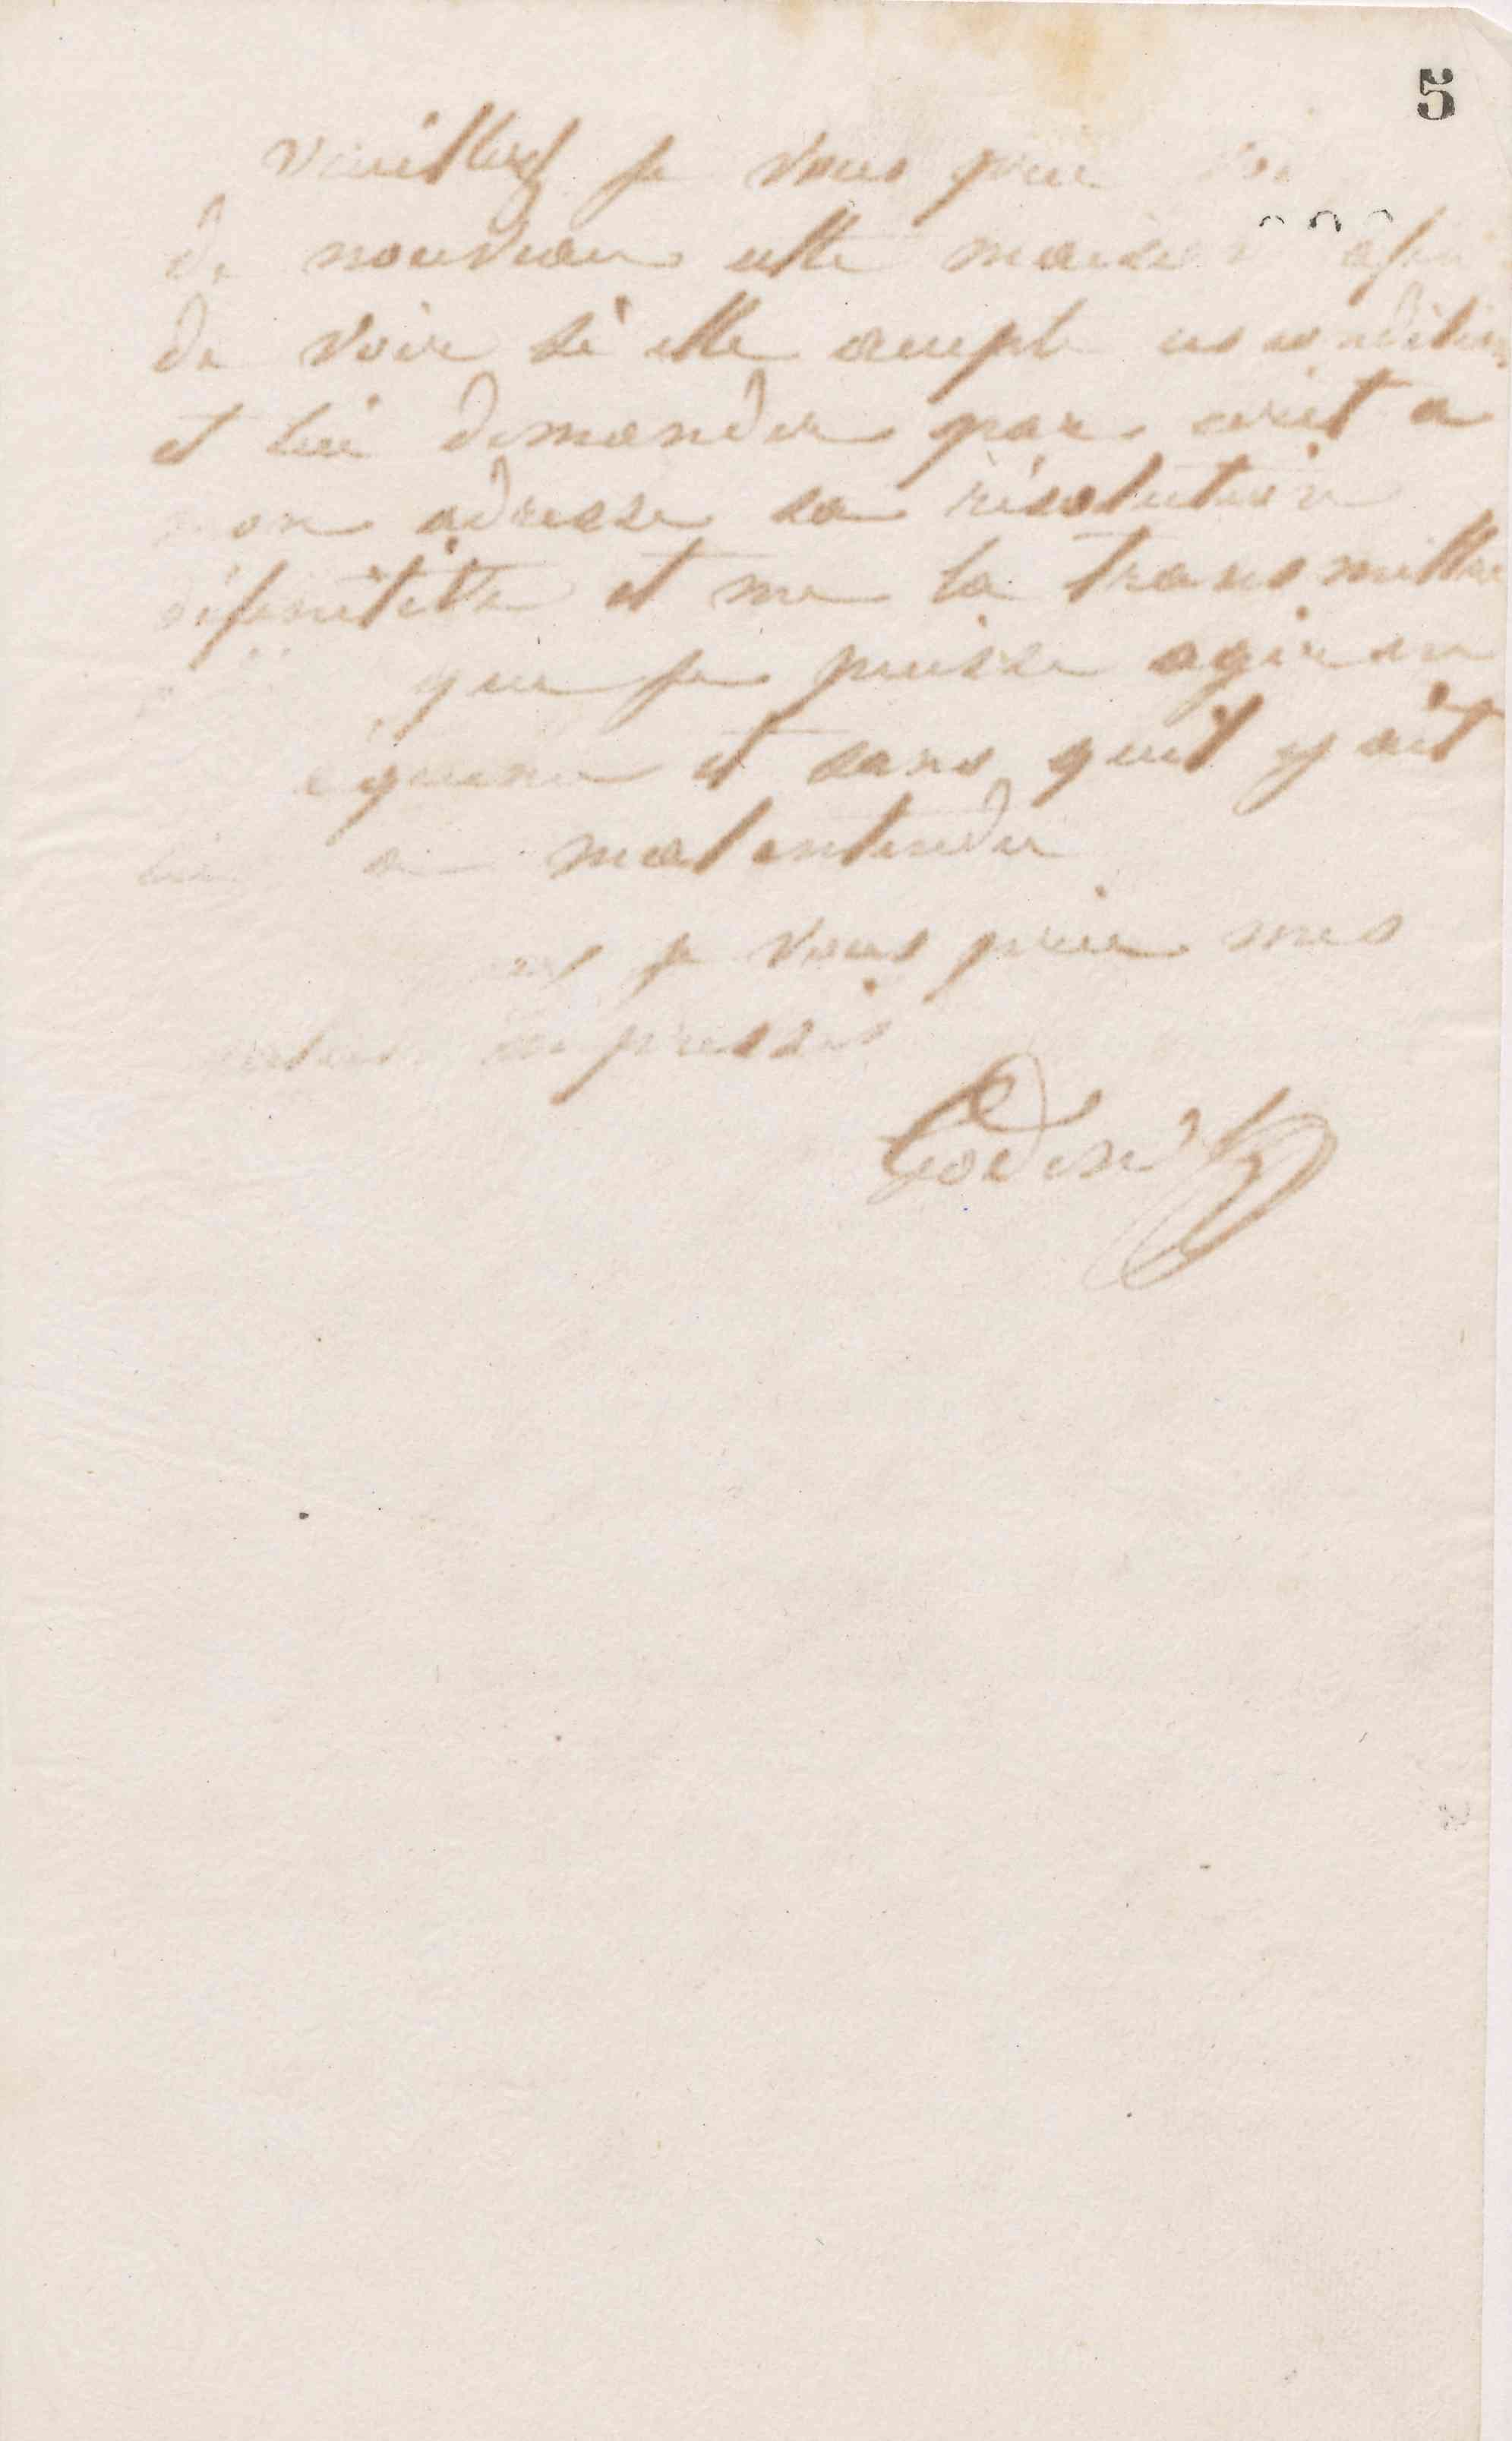 5
veuillez je vous prie voir
de nouveau cette maison afin
de voir si elle accepte ces conditions
et lui demander par écrit a
mon adresse sa résolution
définitive et me la transmettre
que je puisse agir en
équence et sans quil y ait
malentendu
je vous prie mes
empressés
Godin